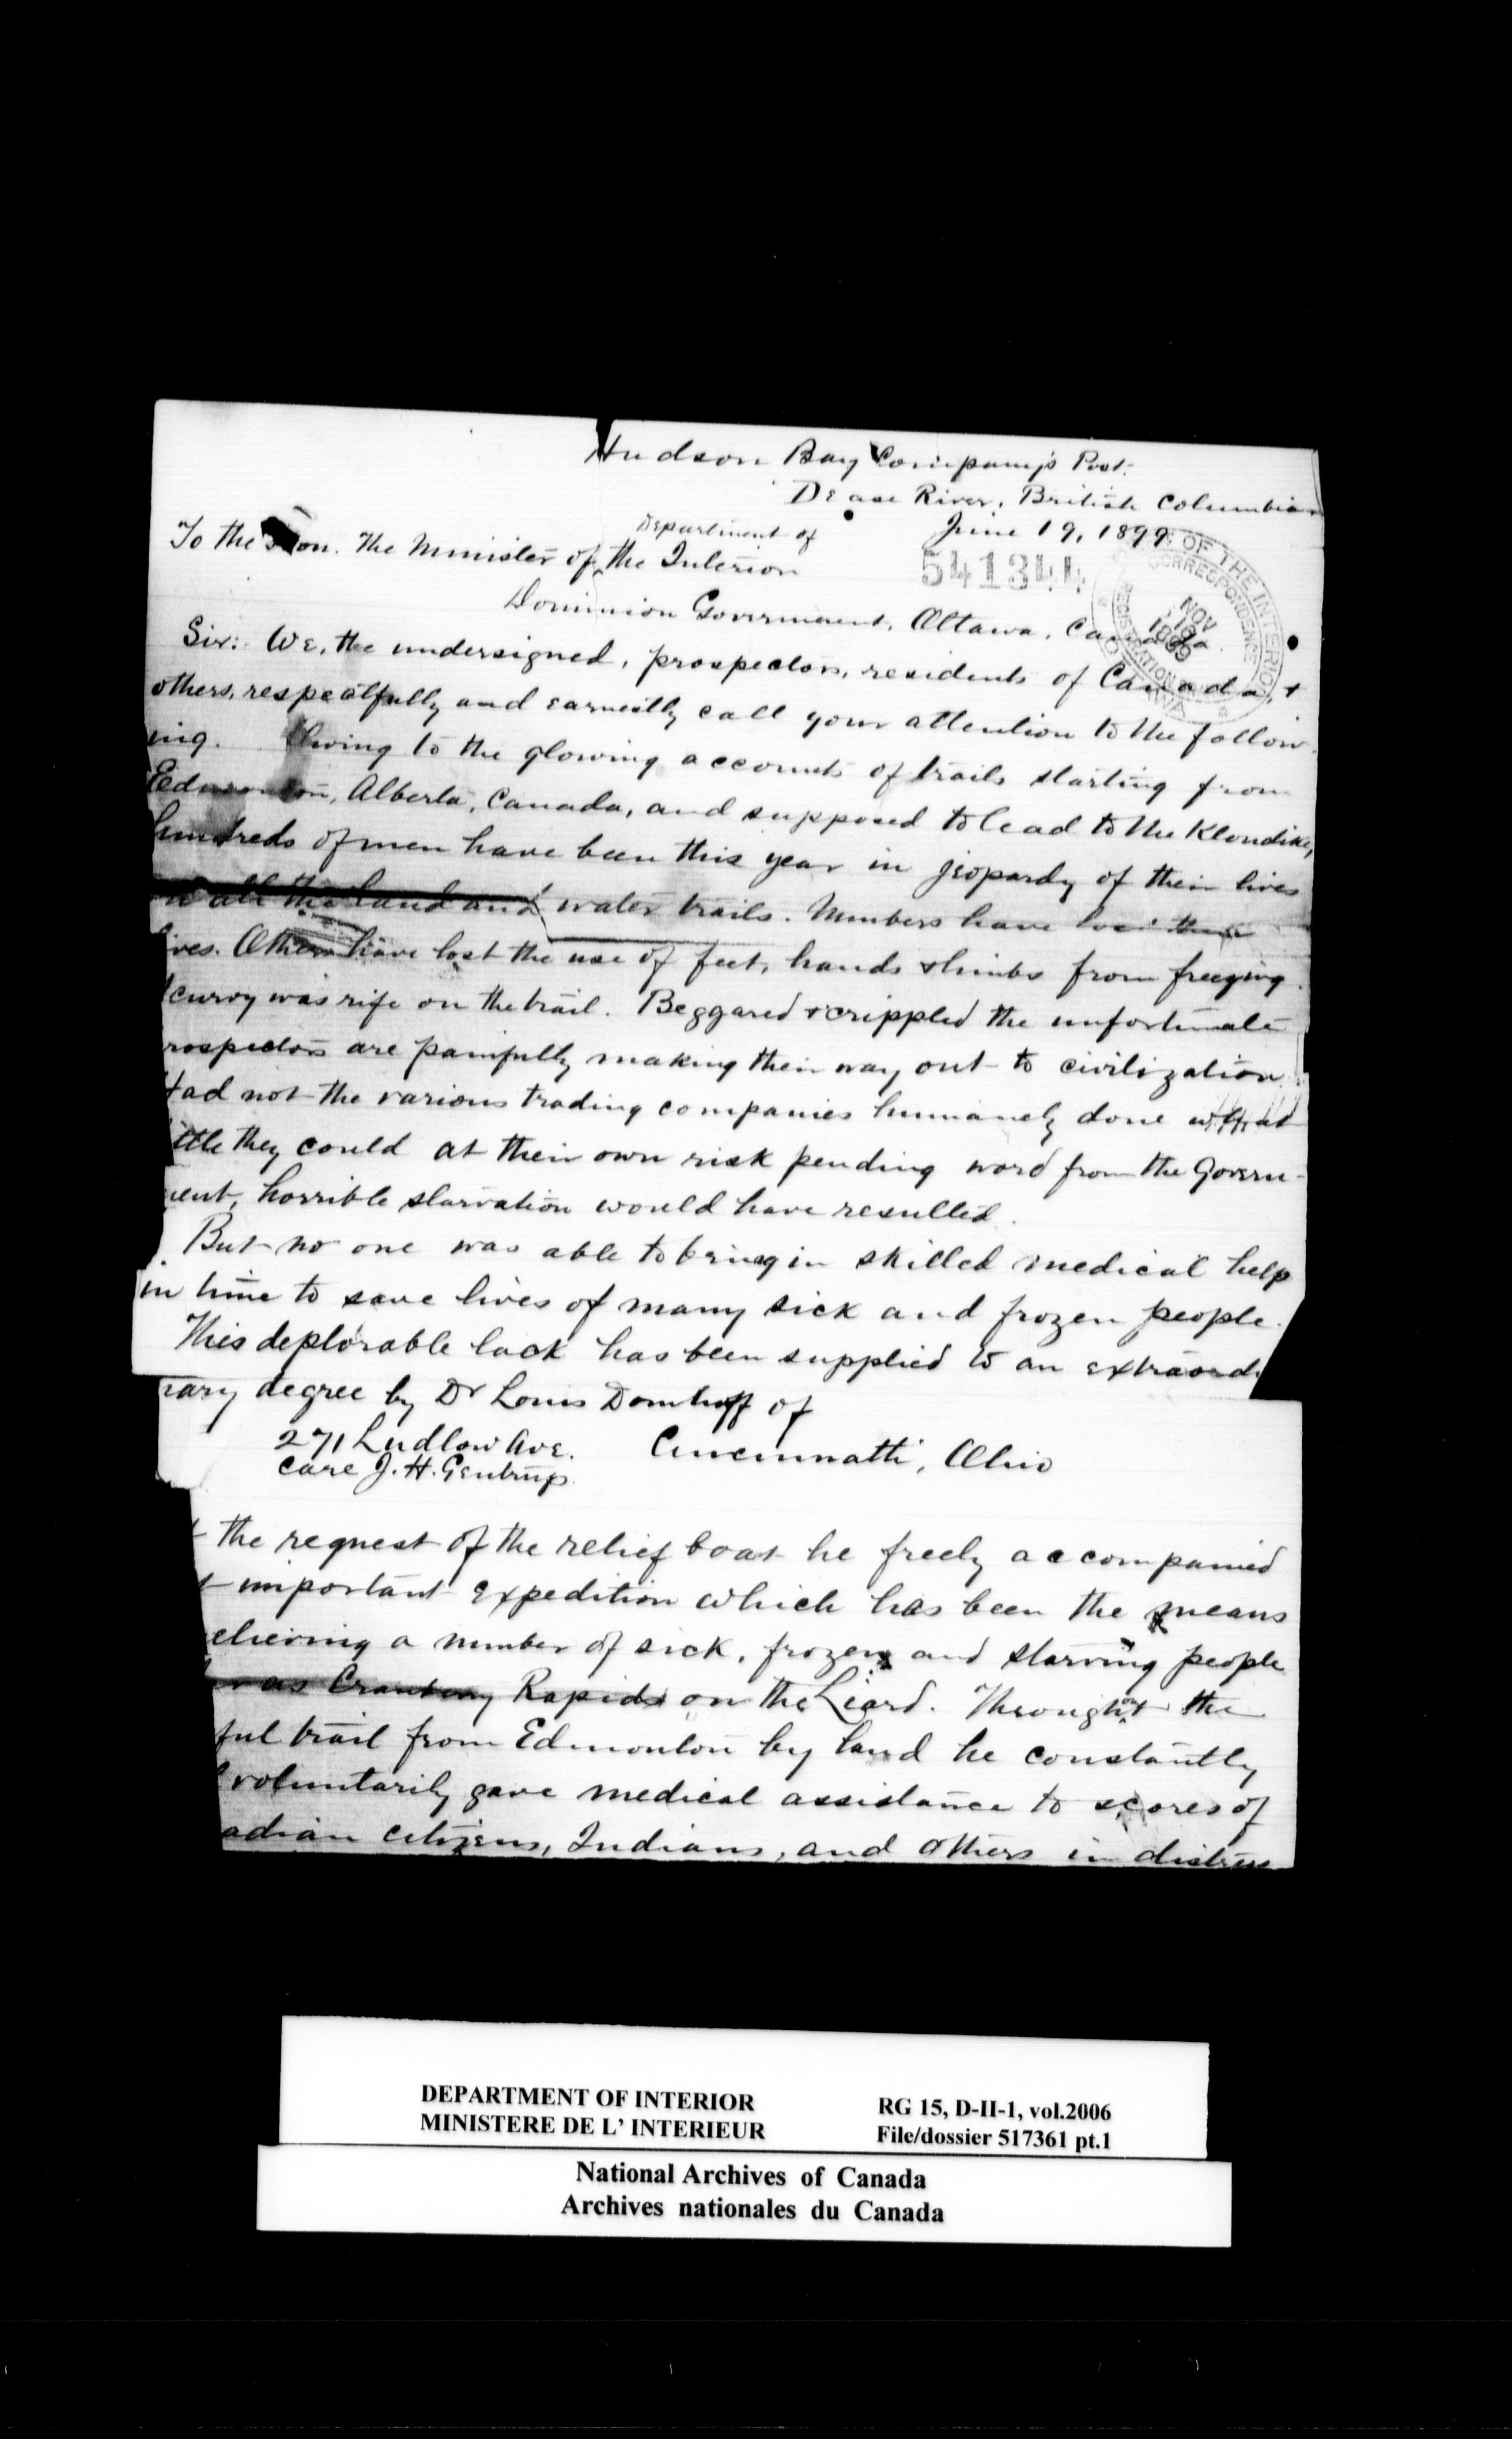 Hudson Bay Company's Post.
Dease River, British Columbia
June 19, 1899
Department of
To the Hon. The Minister of the Interior
541344
Dominion Government, Ottawa, Canada.
OF THE INTERIOR
CORRESPONDENCE
NOV
1899
REGISTRATION
OTTAWA
Sir: We, the undersigned, prospectors, residents of Canada, +
others, respectfully and earnestly call your attention to the follow-
ing. Owing to the glowing accounts of trails starting from
Edmonton, Alberta, Canada, and supposed to lead to the Klondike,
hundreds of men have been this year in jeopardy of their lives
all the land and water trails. Numbers have lost their
ives. Others have lost the use of feet, hands & limbs from freezing.
curvy was rife on the trail. Beggared & crippled the unfortunate
rospectors are painfully making their way out to civilization.
Had not the various trading companies humanely done what
ittle they could at their own risk pending word from the Govern-
ment, horrible starvation would have resulted.
But no one was able to bring in skilled medical help
in time to save lives of many sick and frozen people.
This deplorable lack has been supplied to an extraordi
nary degree by Dr Louis Domhoff of
271 Ludlow Ave. Cincinnatti, Ohio
care J. H. Gentrup.
the request of the relief boat he freely accompanied
t important expedition which has been the means
elieving a number of sick, frozen and starving people
as Cranberry Rapids on the Liard. Throughout the
ful trail from Edmonton by land he constantly
voluntarily gave medical assistance to scores of
adian citizens, Indians, and others in distress
DEPARTMENT OF INTERIOR
MINISTERE DE L' INTERIEUR
RG 15, D-II-1, vol.2006
File/dossier 517361 pt.1
National Archives of Canada
Archives nationales du Canada